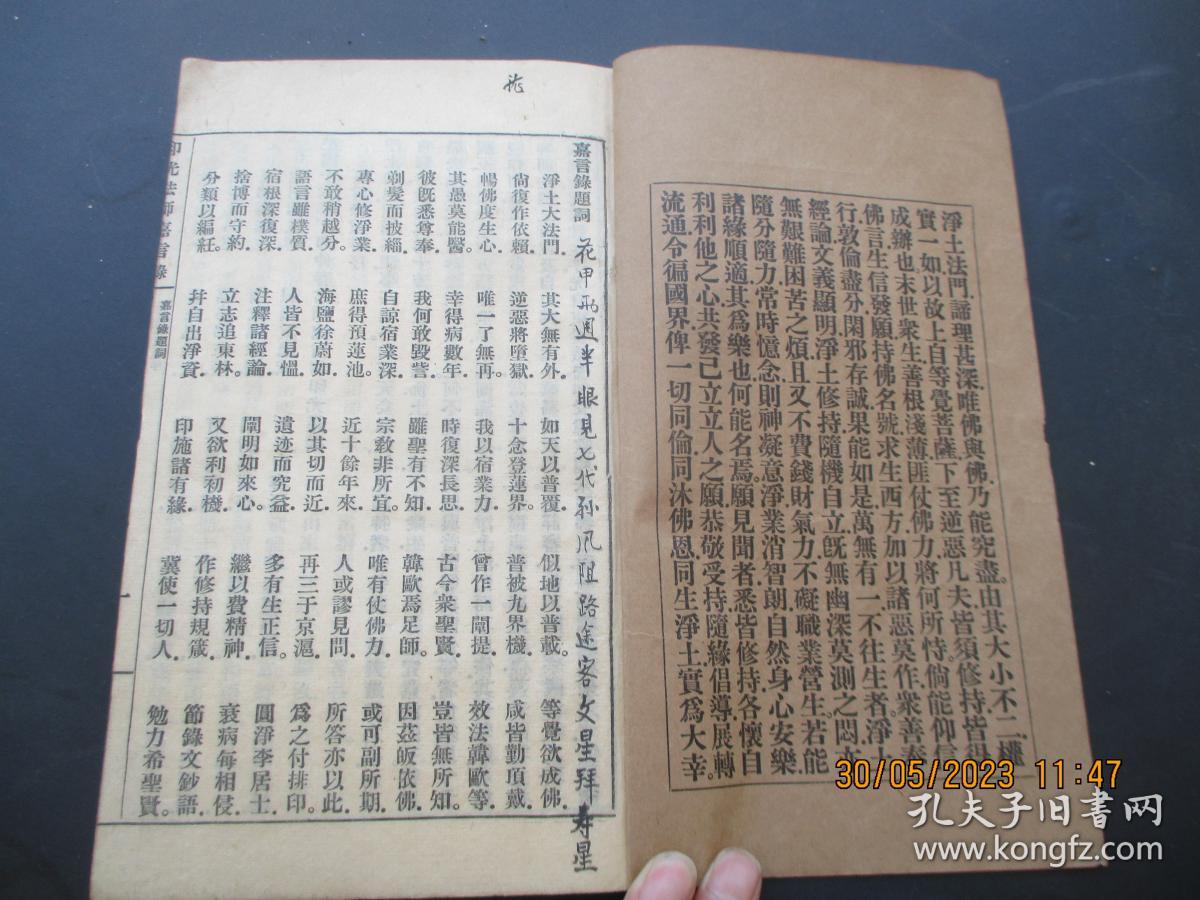 淨土法門諦理甚深唯佛與佛乃能究盡。由其大小不二權
實一如以故上自等覺菩薩下至逆惡凡夫皆須修持皆得
成辦也末世衆生善根淺薄匪仗佛力將何所恃倘能仰信
佛言生信發願持佛名號求生西方加以諸惡莫作衆善奉
行敦倫盡分閑邪存誠果能如是萬無有一不往生者淨土
經論文義顯明淨土修持隨機自立旣無幽深莫測之悶亦
無艱難困苦之煩且又不費錢財氣力不礙職業營生若能
隨分隨力常時憶念則神凝意淨業消智朗自然身心安樂
諸緣順適其爲樂也何能名焉願見聞者悉皆修持各懷自
利利他之心共發己立立人之願恭敬受持隨緣倡導展轉
流通令徧國界俾一切同倫同沐佛恩同生淨土實爲大幸。
嘉言錄題詞
花甲兩週半眼見七代孙风阻路途客文星拜寿星
淨土大法門．其大無有外．如天以普覆．似地以普載．等覺欲成佛．
倘復作依賴．逆惡將墮獄．十念登蓮界．普被九界機．咸皆勤頂戴．
暢佛度生心．唯一了無再．我以宿業力．曾作一闡提．效法韓歐等．
其愚莫能醫．幸得病數年．時復深長思．古今衆聖賢．豈皆無所知．
彼旣悉尊奉．我何敢毀訾．雖聖有不知．韓歐焉足師．因茲皈依佛．
剃髮而披緇．自諒宿業深．宗敎非所宜．唯有仗佛力．或可副所期．
專心修淨業．庶得預蓮池．近十餘年來．人或謬見問．所答亦以此．
不敢稍越分。海鹽徐蔚如．以其切而近．再三于京滬．爲之付排印。
語言雖樸質．人皆不見慍．遺迹而究益．多有生正信。圓淨李居士．
宿根深復深．注釋諸經論．闡明如來心。繼以費精神．衰病每相侵．
捨博而守約．立志追東林．又欲利初機．作修持規箴．節錄文鈔語．
分類以編紝。幷自出淨資．印施諸有緣．冀使一切人．勉力希聖賢。
印光法師嘉言錄
嘉言錄題詞
一
30/05/2023 11:47
孔夫子旧書网
www.kongfz.com